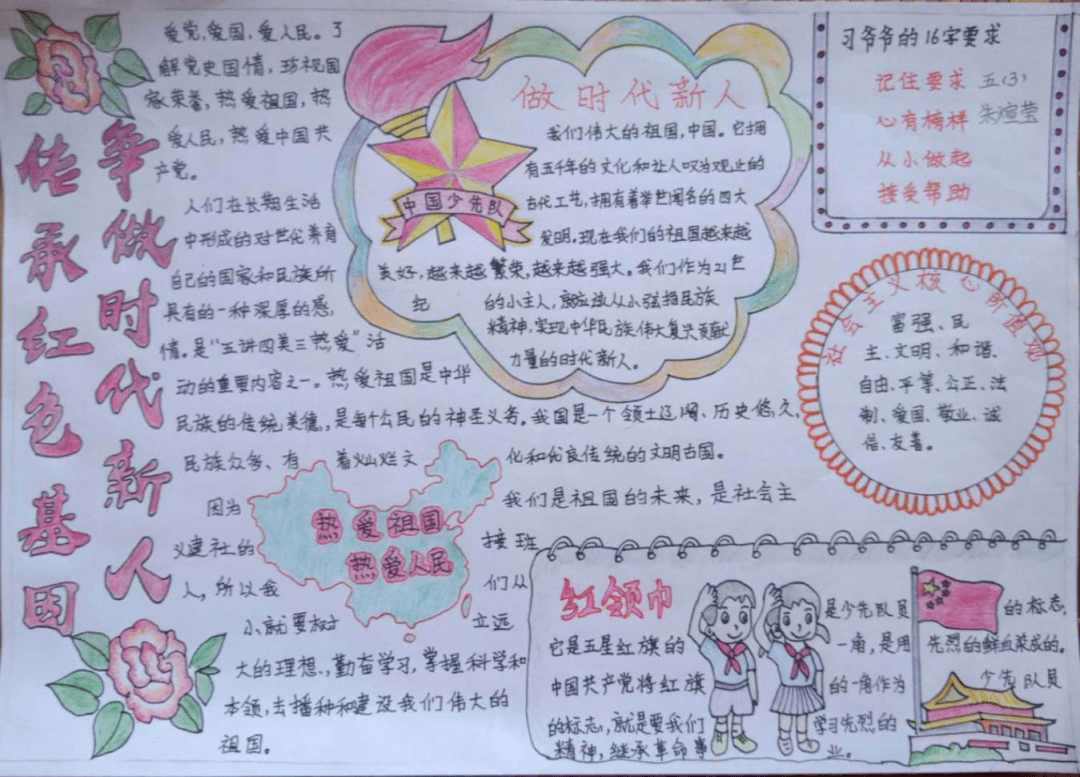 传承红色基因
争做时代新人
爱党,爱国,爱人民。了
解党史国情,珍视国
家荣誉,热爱祖国,热
爱人民,热爱中国共
产党。
人们在长期生活
中形成的对世代养育
自己的国家和民族所
具有的一种深厚的感
情。是“五讲四美三热爱”活
动的重要内容之一。热爱祖国是中华
民族的传统美德,是每个公民的神圣义务。我国是一个领土辽阔、历史悠久,
民族众多、有着灿烂文化和优良传统的文明古国。
因为我们是祖国的未来,是社会主
义建社的接班
人,所以我们从
小就要树立远
大的理想、勤奋学习,掌握科学和
本领,去播种和建设我们伟大的
祖国。
热爱祖国
热爱人民
中国少先队
做时代新人
我们伟大的祖国,中国。它拥
有五千年的文化和让人叹为观止的
古代工艺,拥有着举世闻名的四大
发明。现在我们的祖国越来越
美好,越来越繁荣,越来越强大。我们作为21世
纪的小主人,就应该从小弘扬民族
精神,实现中华民族伟大复兴贡献
力量的时代新人。
习爷爷的16字要求
记住要求
心有榜样
从小做起
接受帮助
五(3)
朱煊莹
社会主义核心价值观
富强、民
主、文明、和谐、
自由、平等、公正、法
制、爱国、敬业、诚
信、友善。
红领巾是少先队员的标志,
它是五星红旗的一角,是用先烈的鲜血染成的。
中国共产党将红旗的一角作为少先队员
的标志,就是要我们学习先烈的
精神,继承革命事业。